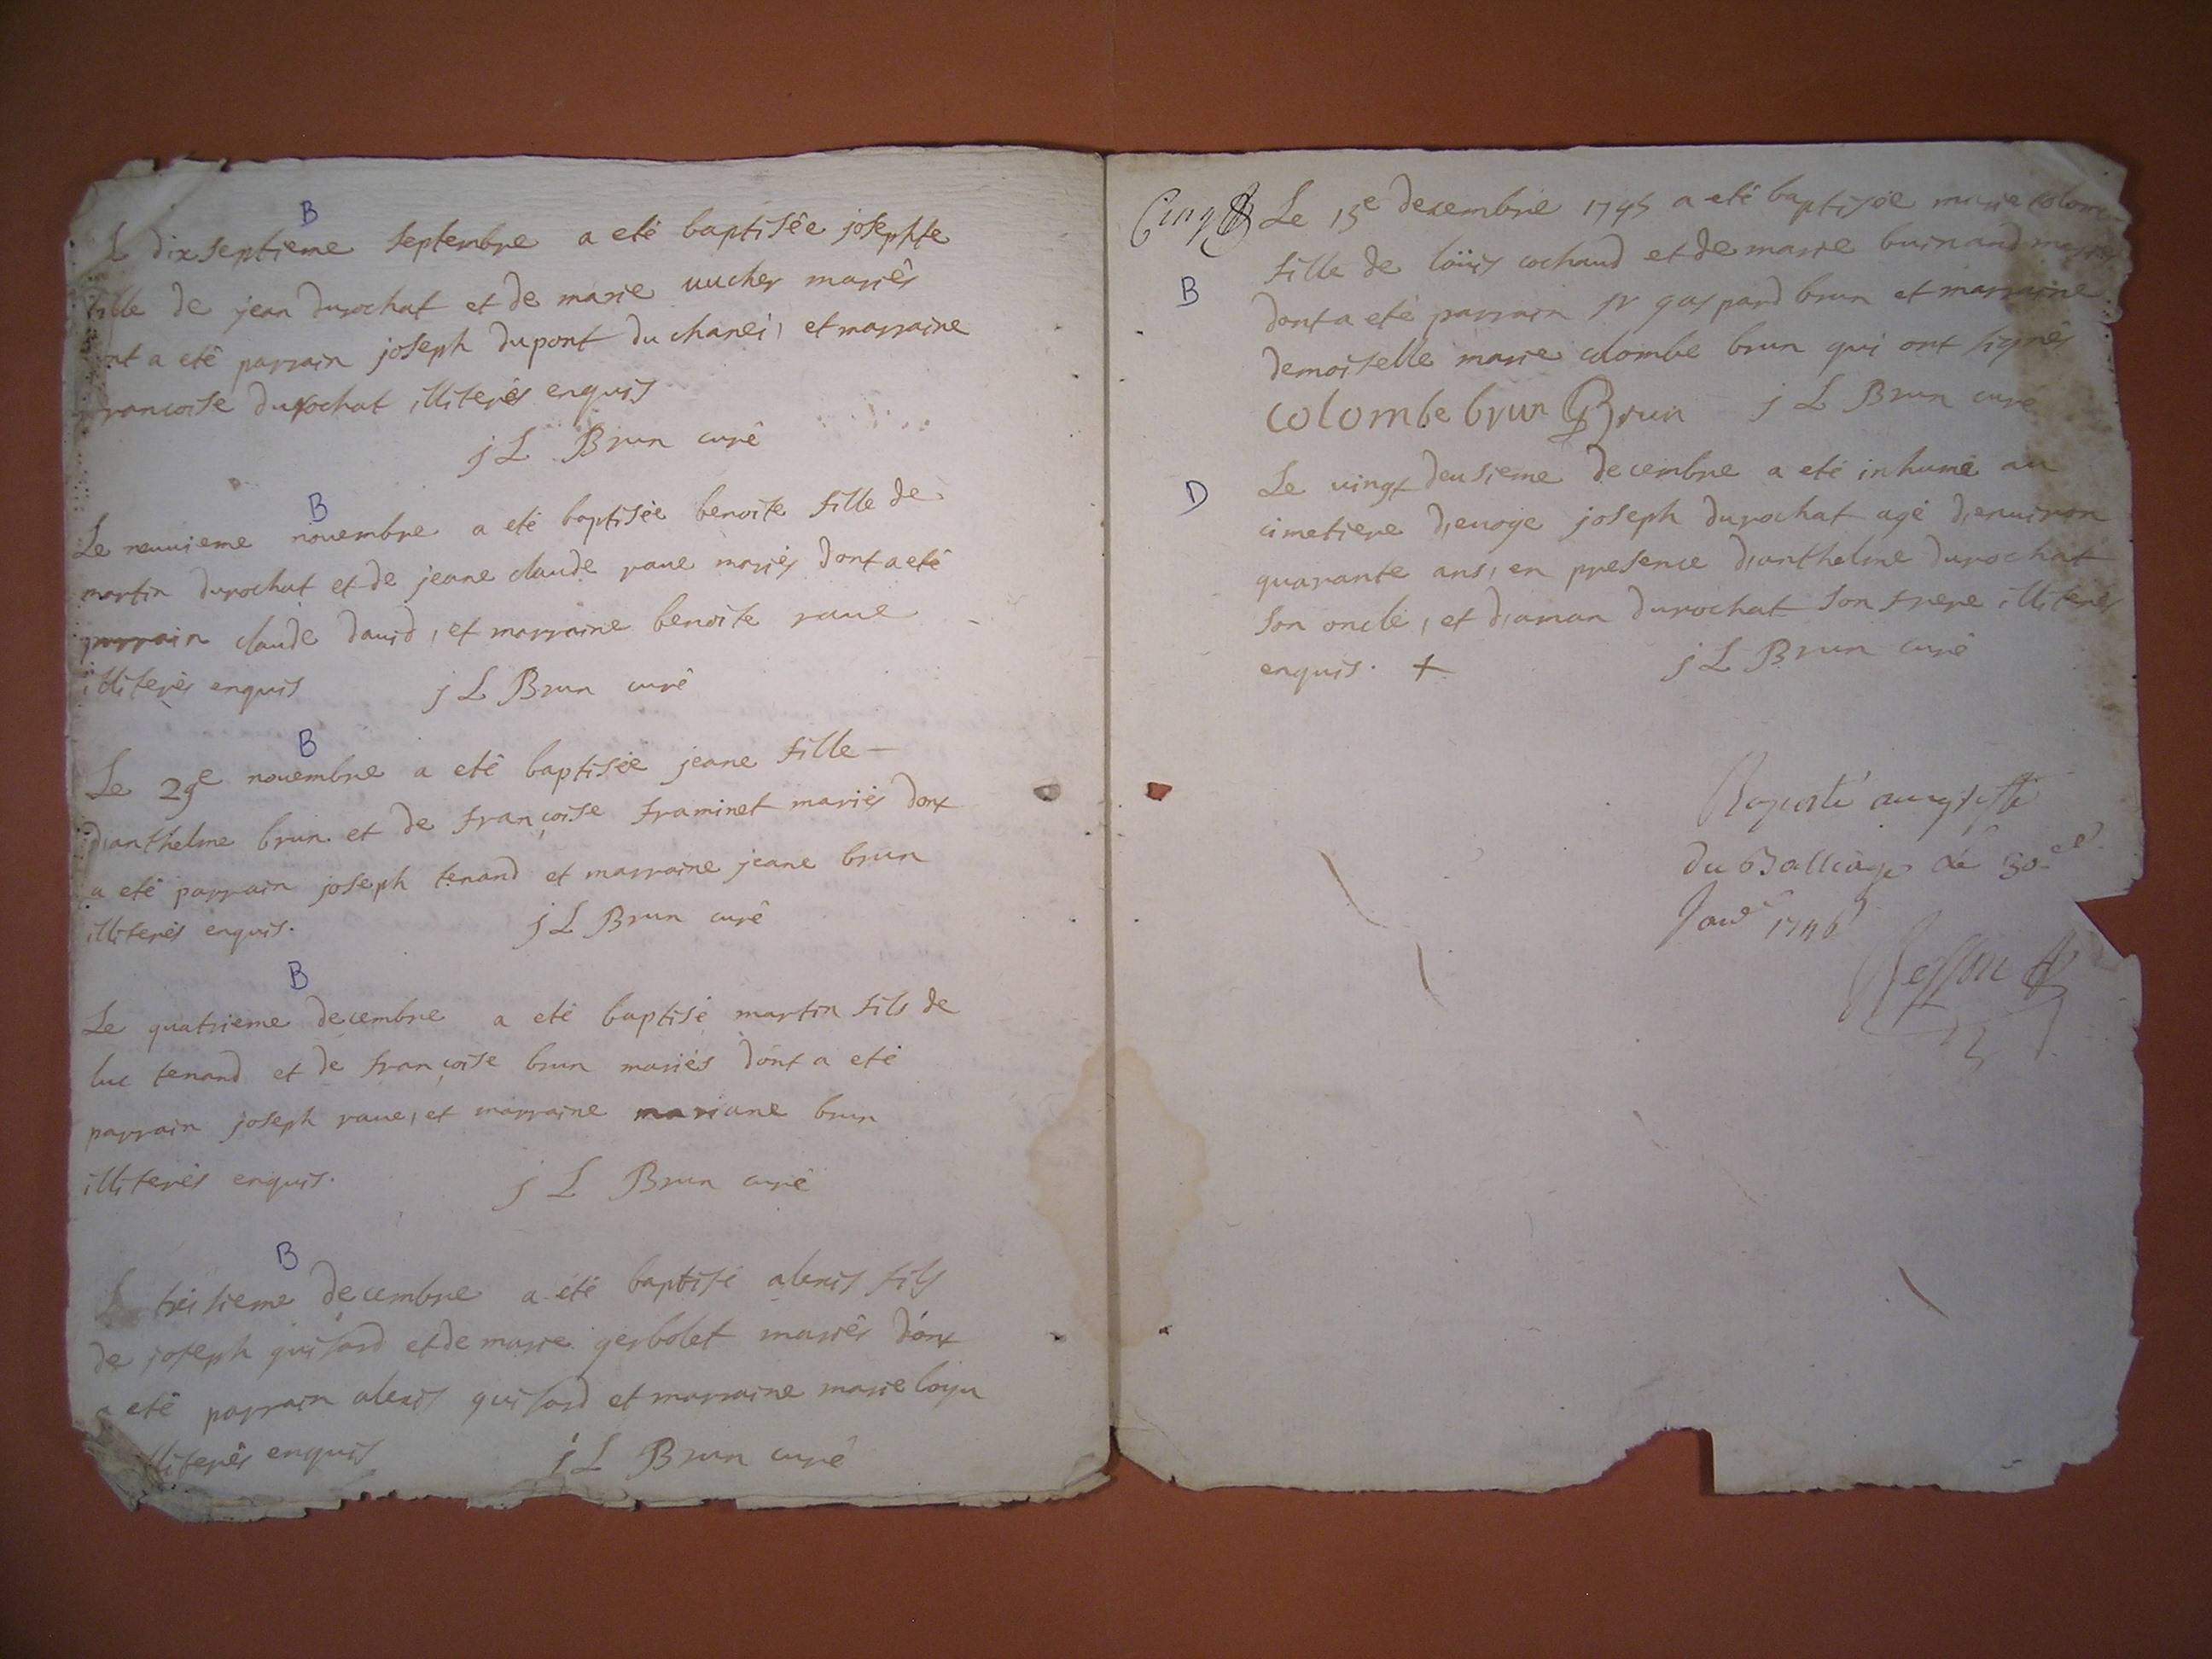 B
L dixseptieme septembre a eté baptisée josephte
fille de jean durochat et de marie uucher mariés
nt a eté parrain joseph dupont du chanei, et marraine
francoise durochat illiterés enquis
j L Brun curé
B
Le neuuieme nouembre a eté baptisée benoite fille de
martin durochat et de jeane claude raue mariés dont a eté
parrain claude dauid, et marraine benoite raue
illiterés enquis j L Brun curé
B
Le 29e nouembre a eté baptisée jeane fille
d,anthelme brun et de françoise framinet mariés dont
a eté parrain joseph tenand et marraine jeane brun
illiterés enquis. j L Brun curé
B
Le quatrieme decembre a eté baptisé martin fils de
luc tenand et de françoise brun mariés dont a eté
parrain joseph raue, et marraine mariane brun
illiterés enquis. j L Brun curé
B
L treisieme decembre a eté baptisé alexis fils
de joseph guisard et de marie gerbolet mariés dont
a eté parrain alexis guisard et marraine marie
illiterés enquis j L Brun curé
Cinq Le 15e decembre 1745 a eté baptisée marie colom
B
fille de loüis cochaud et de marie buinand mariés
dont a eté parrain sr gaspard brun et marraine
demoiselle marie colombe brun qui ont signés
colombe brun GBrun j L Brun curé
D
Le vingt deusieme decembre a eté inhumé au
cimetiere d,euoge joseph durochat agé d,enuiron
quarante ans, en presence d,anthelme durochat
son oncle, et d,aman durochat son frere illiterés
enquis. + j L Brun curé
Raporté au greffe
du Balliage le 30e
Janv 1746